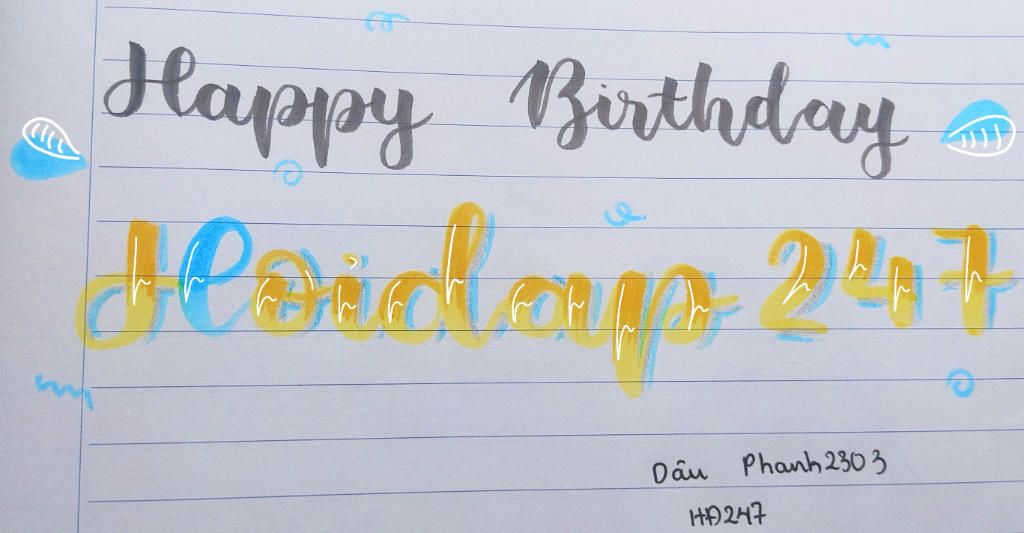 Happy Birthday
Hoidap 247
Dâu Phanh2303
HĐ247